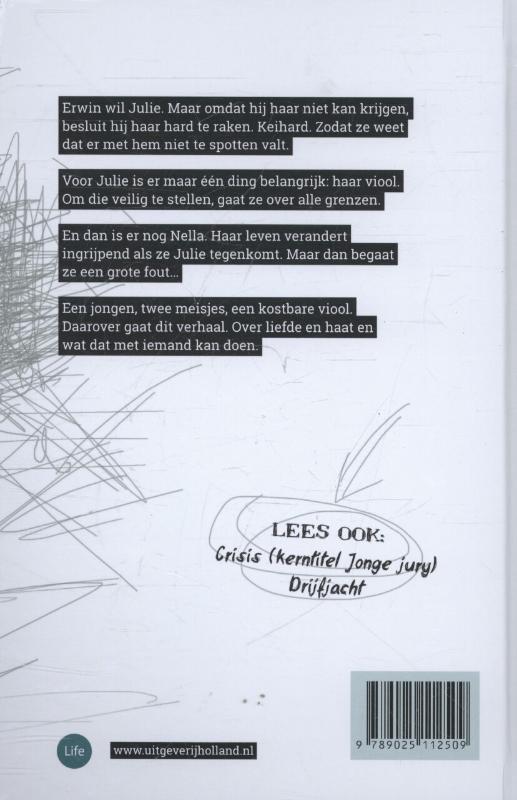 Erwin wil Julie. Maar omdat hij haar niet kan krijgen,
besluit hij haar hard te raken. Keihard. Zodat ze weet
dat er met hem niet te spotten valt.
Voor Julie is er maar één ding belangrijk: haar viool.
Om die veilig te stellen, gaat ze over alle grenzen.
En dan is er nog Nella. Haar leven verandert
ingrijpend als ze Julie tegenkomt. Maar dan begaat
ze een grote fout...
Een jongen, twee meisjes, een kostbare viool.
Daarover gaat dit verhaal. Over liefde en haat en
wat dat met iemand kan doen.
LEES OOK:
Crisis (kerntitel Jonge jury)
Drijfjacht
Life
www.uitgeverijholland.nl
9 789025 112509